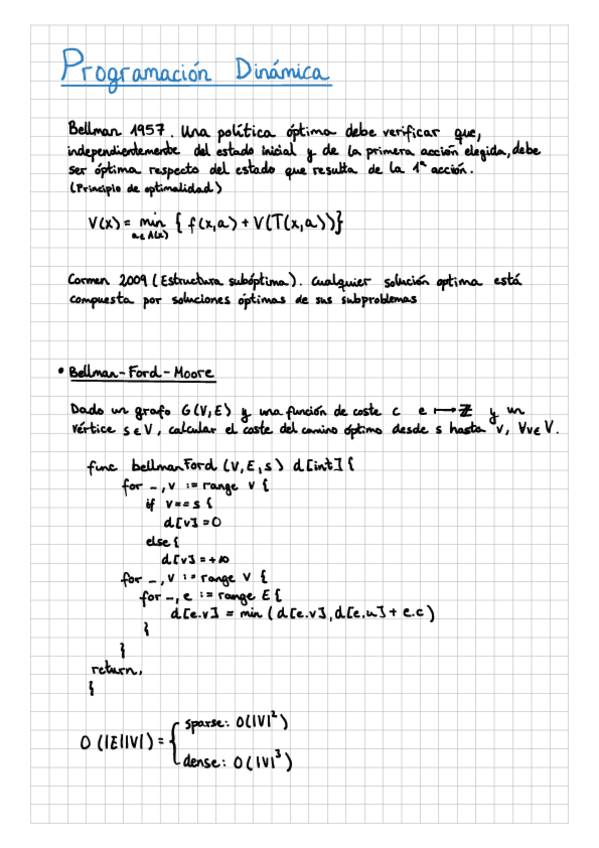 Programación Dinámica
Bellman 1957. Una política óptima debe verificar que,
independientemente del estado inicial y de la primera acción elegida, debe
ser óptima respecto del estado que resulta de la 1ª acción.
(Principio de optimalidad)
V(x) = min { f(x,a) + V(T(x,a))}
a∈A(x)
Cormen 2009 (Estructura subóptima). Cualquier solución optima está
compuesta por soluciones óptimas de sus subproblemas
• Bellman-Ford-Moore
Dado un grafo G(V,E) y una función de coste c e ↦ ℤ y un
vértice s∈V, calcular el coste del camino óptimo desde s hasta v, ∀v∈V.
func bellmanFord (V,E,s) d[int]{
for _,v := range V {
if v==s {
d[v]=0
else {
d[v]=+∞
for _,v := range V {
for _,e := range E {
d[e.v] = min (d[e.v],d[e.u]+e.c)
}
}
return,
}
O(|E||V|) = { sparse: O(|V|²)
dense: O(|V|³)